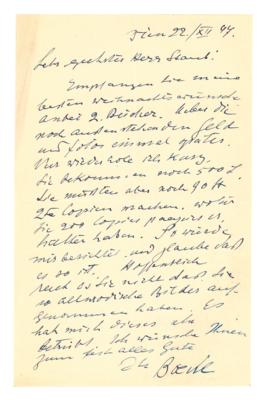 Wien 22/XII 47.
Sehr geehrter Herr Staub!
Empfangen Sie meine
besten Weihnachtswünsche
anbei 2 Bücher. Ueber die
noch ausstehenden Geld
und Fotos einmal später.
Nur wiederhole ich kurz,
Sie bekommen noch 500 S.
Sie müßten aber noch 90
Copien machen, wofür
Sie 200 Copien
haben. So würde
mir berichtet und glaube daß
es so ist. Hoffentlich
es Sie nicht daß Sie
so altmodische Bilder auf-
genommen haben. Es
hat mich dieses
betrübt. Ich wünsche Ihnen
zum Fest alles Gute
Ihr Boeckl